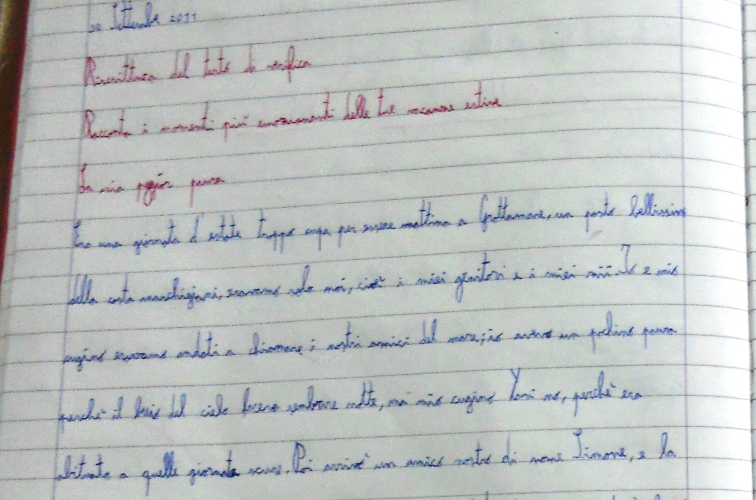 20 Settembre 2011
Riscrittura del testo di verifica
Racconta i momenti più emozionanti delle tue vacanze estive
La mia peggior paura
Era una giornata d'estate troppo cupa per essere mattina a Grottamare, un posto bellissimo
della costa marchigiana, eravamo solo noi, cioè i miei genitori e i miei zii. Io e mio
cugino eravamo andati a chiamare i nostri amici del mare; io avevo un pochino paura
perché il buio del cielo faceva sembrare notte, ma mio cugino Yuri no, perché era
abituato a quelle giornate scure. Poi arrivò un amico nostro di nome Simone, e la